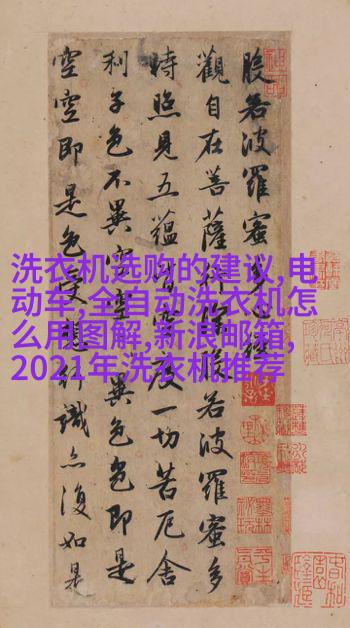 般若波羅蜜多心經
觀自在菩薩行深般若波羅蜜多
時照見五蘊皆空度一切苦厄舍
利子色不異空空不異色色即是
空空即是色受想行識亦復如是
洗衣机选购的建议,电
动车,全自动洗衣机怎
么用图解,新浪邮箱,
2021年洗衣机推荐